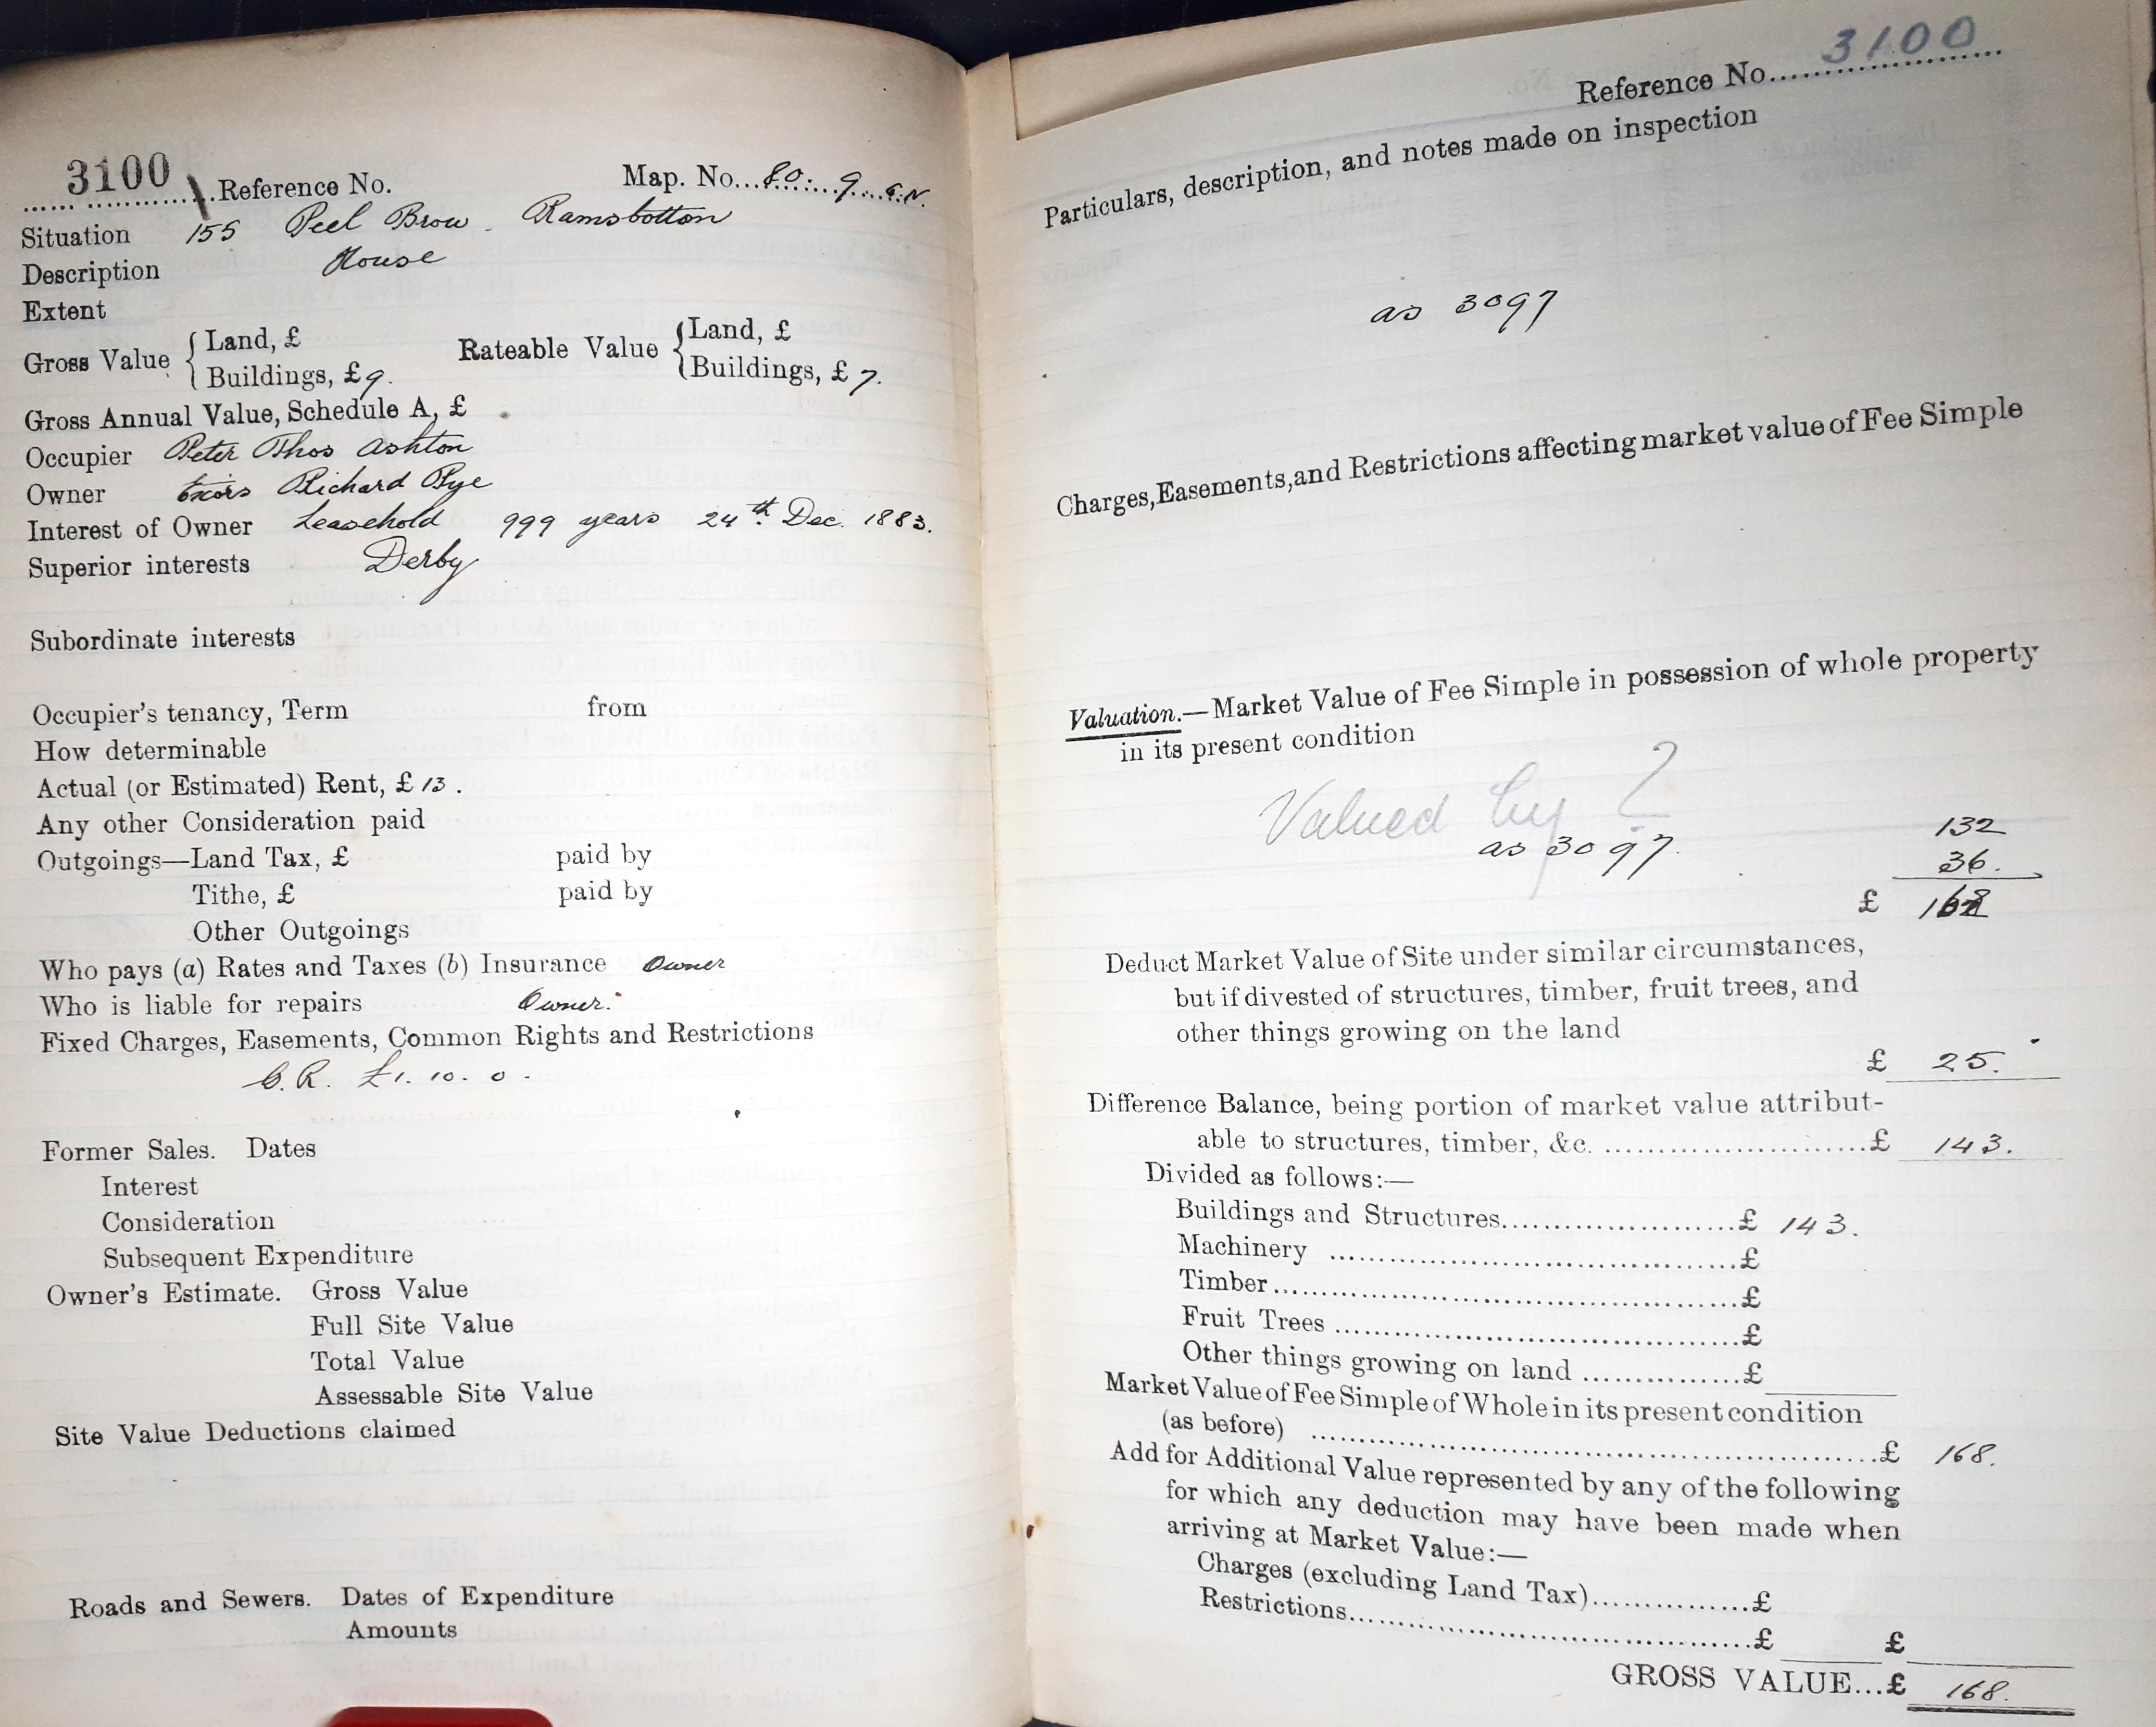 3100 Reference No. Map. No. 80. 9. S.W.
Situation 155 Peel Brow Ramsbottom
Description House
Extent
Gross Value { Land, £ Rateable Value { Land, £
Buildings, £9. Buildings, £7.
Gross Annual Value, Schedule A, £
Occupier Peter Thos Ashton
Owner Exors Richard Pye
Interest of Owner Leasehold 999 years 24th Dec. 1883.
Superior interests Derby
Subordinate interests
Occupier's tenancy, Term from
How determinable
Actual (or Estimated) Rent, £13.
Any other Consideration paid
Outgoings—Land Tax, £ paid by
Tithe, £ paid by
Other Outgoings
Who pays (a) Rates and Taxes (b) Insurance Owner
Who is liable for repairs Owner.
Fixed Charges, Easements, Common Rights and Restrictions
G.R. £1. 10. 0.
Former Sales. Dates
Interest
Consideration
Subsequent Expenditure
Owner's Estimate. Gross Value
Full Site Value
Total Value
Assessable Site Value
Site Value Deductions claimed
Roads and Sewers. Dates of Expenditure
Amounts
Reference No. 3100
Particulars, description, and notes made on inspection
as 3097
Charges, Easements, and Restrictions affecting market value of Fee Simple
Valuation.—Market Value of Fee Simple in possession of whole property
in its present condition
Valued by ?
as 3097. 132
36.
£ 168
Deduct Market Value of Site under similar circumstances,
but if divested of structures, timber, fruit trees, and
other things growing on the land
£ 25.
Difference Balance, being portion of market value attribut-
able to structures, timber, &c. £ 143.
Divided as follows:—
Buildings and Structures £ 143.
Machinery £
Timber £
Fruit Trees £
Other things growing on land £
Market Value of Fee Simple of Whole in its present condition
(as before) £ 168.
Add for Additional Value represented by any of the following
for which any deduction may have been made when
arriving at Market Value:—
Charges (excluding Land Tax) £
Restrictions £ £
GROSS VALUE... £ 168.